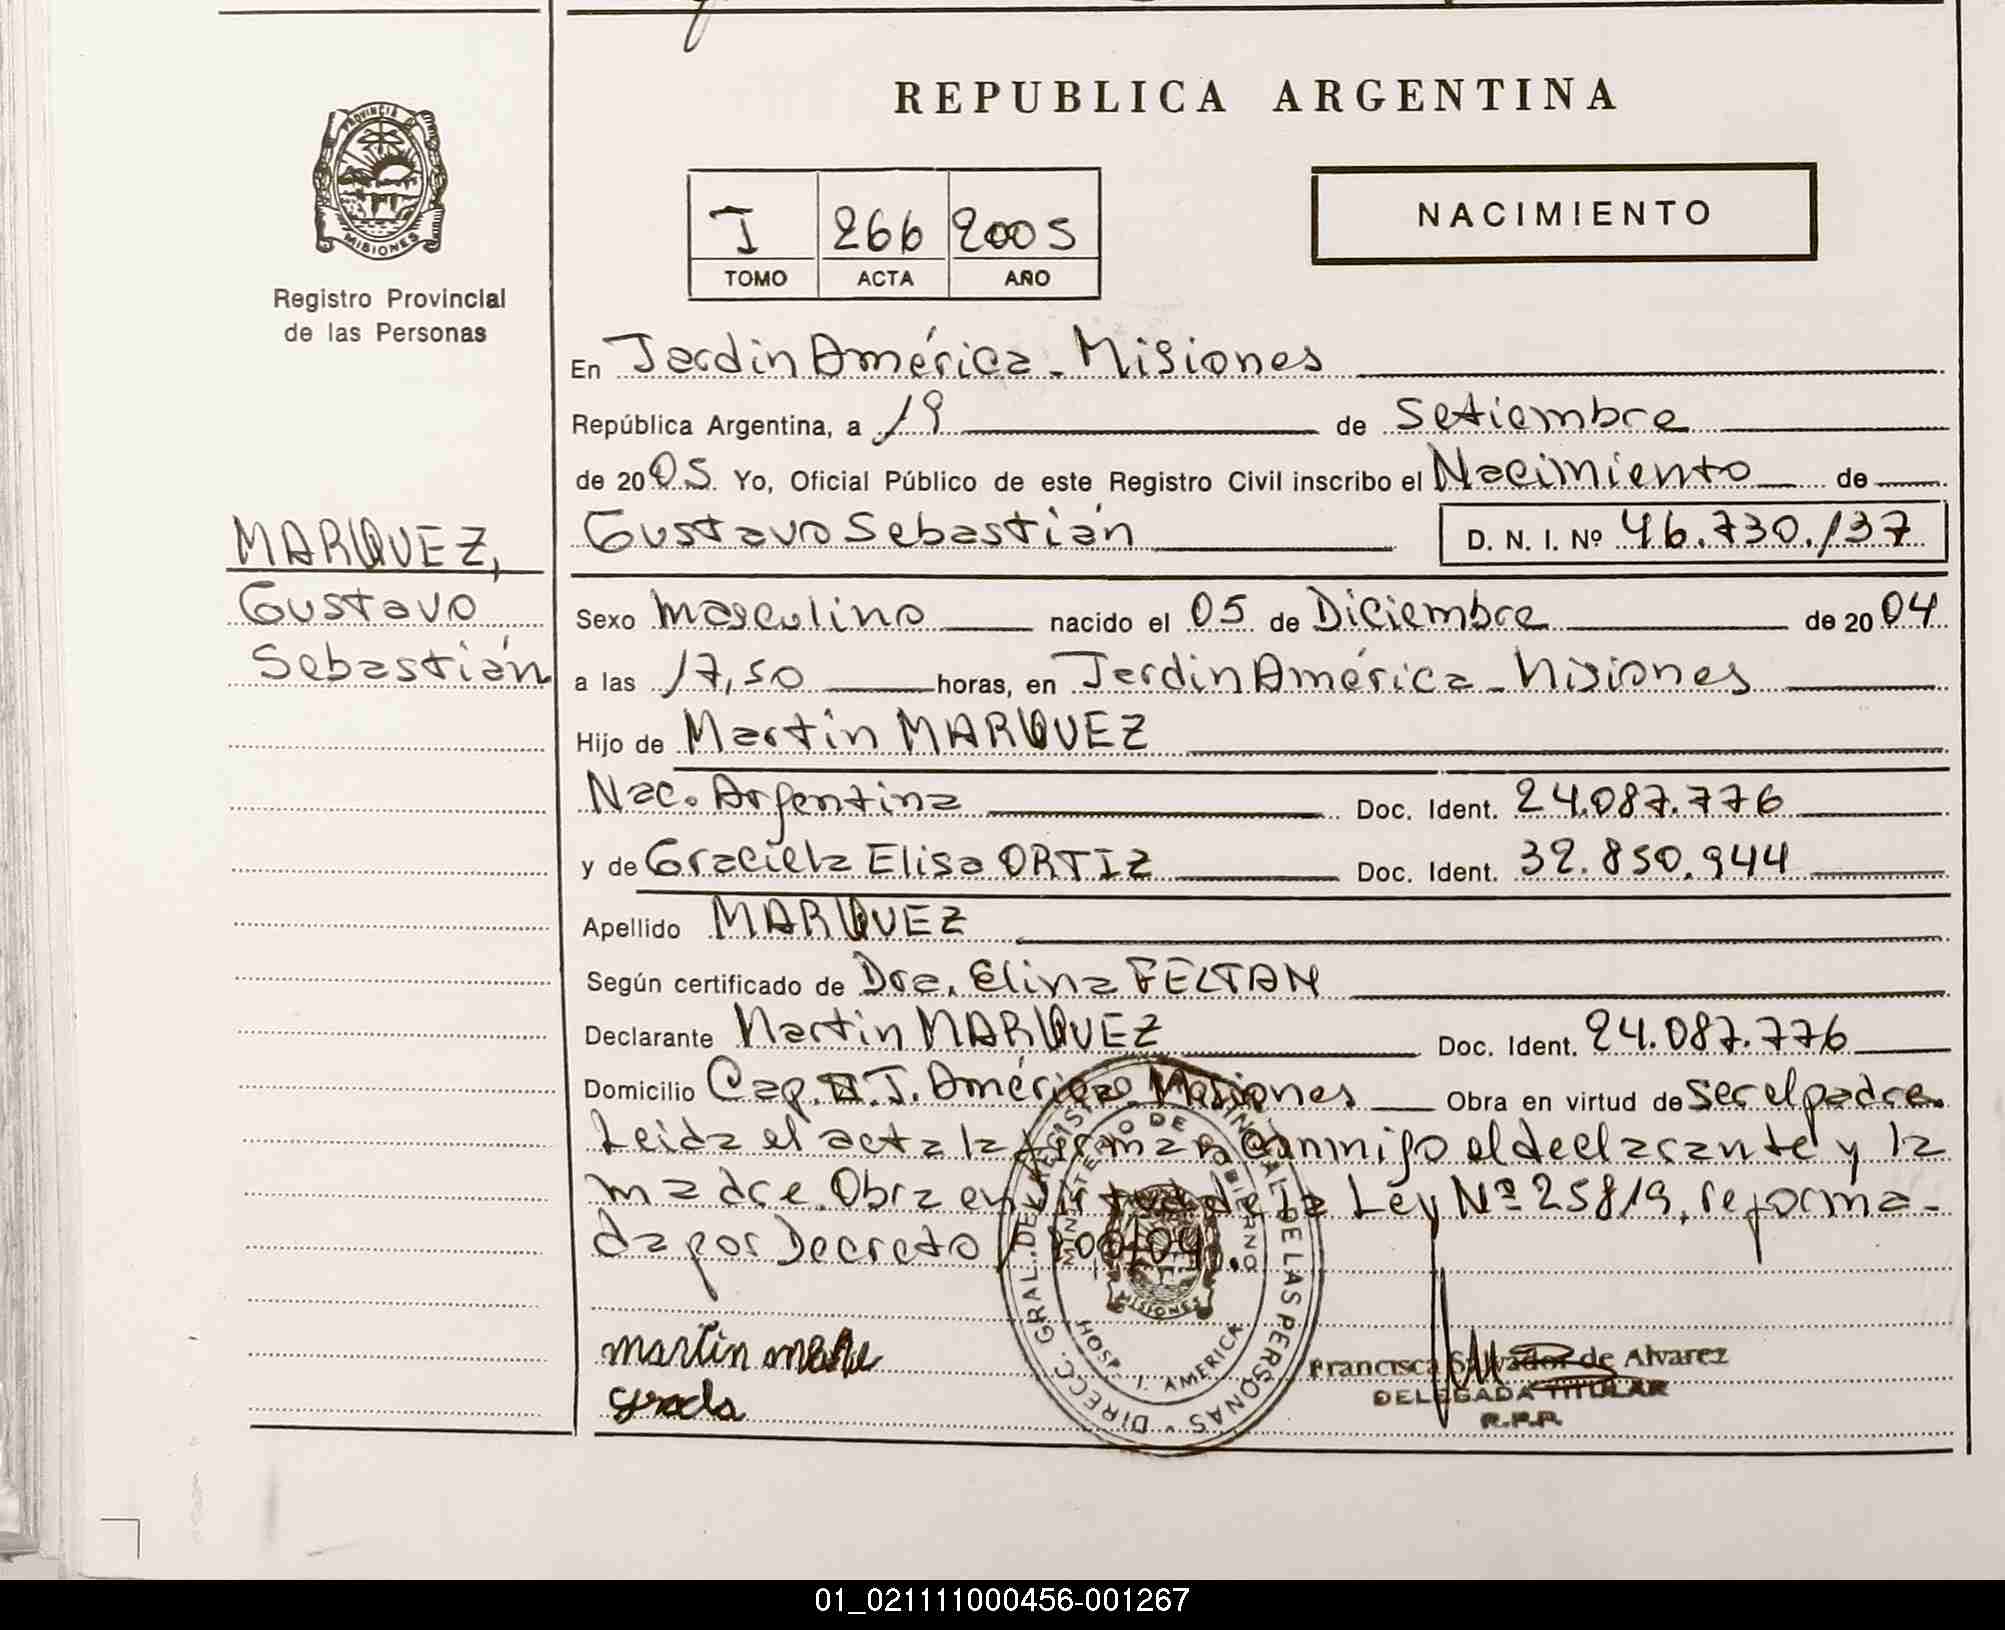 REPUBLICA ARGENTINA
PROVINCIA DE
MISIONES
Registro Provincial
de las Personas
I 266 2005
TOMO ACTA AÑO
NACIMIENTO
En Jardin América - Misiones
República Argentina, a 19 de Setiembre
de 2005. Yo, Oficial Público de este Registro Civil inscribo el Nacimiento de
Gustavo Sebastián D. N. I. Nº 46.730.137
MARQUEZ,
Gustavo
Sebastián
Sexo masculino nacido el 05 de Diciembre de 2004
a las 17,50 horas, en Jardin América - Misiones
Hijo de Martin MARQUEZ
Nac. Argentina Doc. Ident. 24.087.776
y de Graciela Elisa ORTIZ Doc. Ident. 32.850.944
Apellido MARQUEZ
Según certificado de Dra. Elina FELTAN
Declarante Martin MARQUEZ Doc. Ident. 24.087.776
Domicilio Cap. J. América Misiones Obra en virtud de ser el padre.
Leida el acta la firman conmigo el declarante y la
madre. Obra en virtud de la Ley Nº 25819, reforma-
da por Decreto
DIRECC. GRAL. DEL REGISTRO PROVINCIAL DE LAS PERSONAS
MINISTERIO DE GOBIERNO
HOSP. J. AMERICA
MISIONES
martin
Francisca Salvador de Alvarez
DELEGADA TITULAR
R.P.P.
01_021111000456-001267